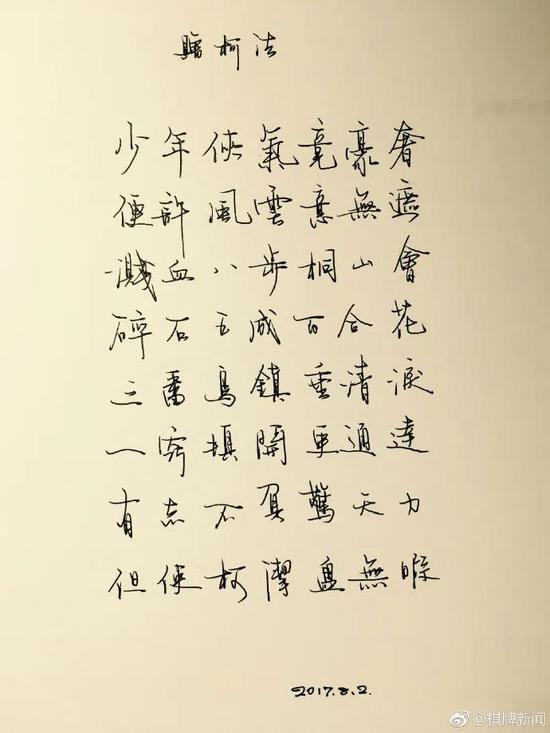 贈柯潔
少年俠氣竟豪奢
便許風雲意無遮
濺血八步桐山會
碎石五成百合花
三番烏鎮垂清淚
一竅填開更通達
有志不負驚天力
但使柯潔盤無暇
2017.8.2.
@棋牌新闻